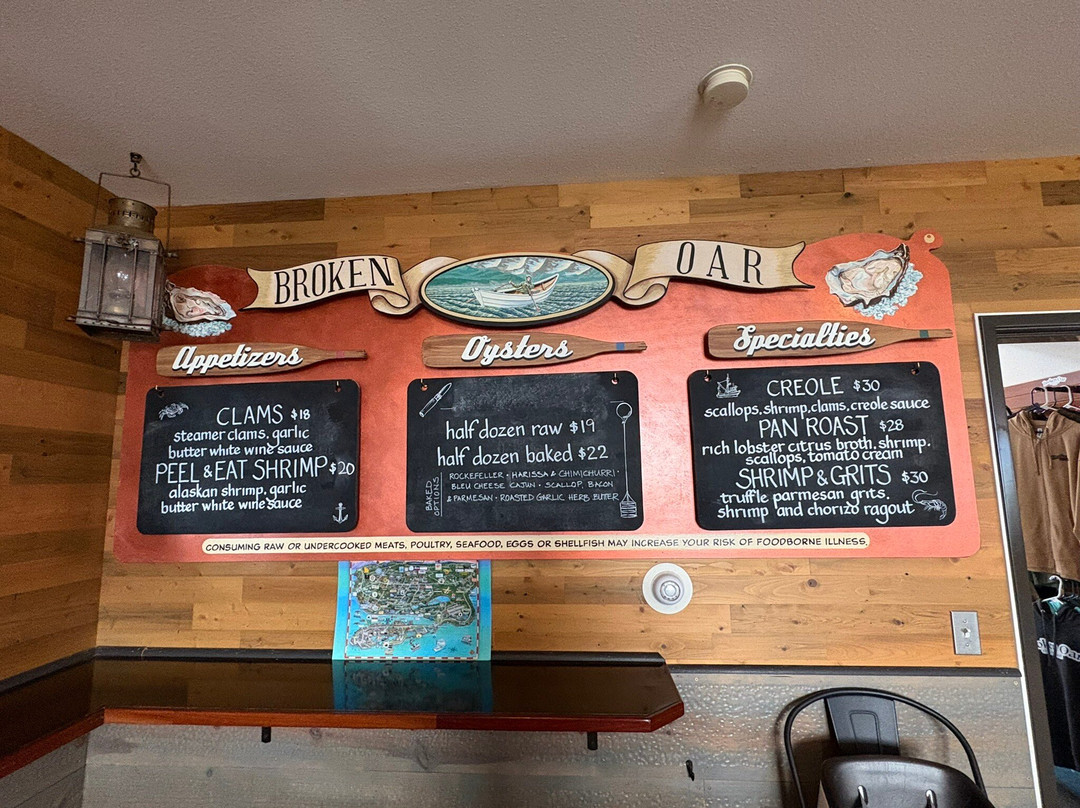 BROKEN OAR
Appetizers
CLAMS $18
steamer clams, garlic
butter white wine sauce
PEEL & EAT SHRIMP $20
alaskan shrimp, garlic
butter white wine sauce
Oysters
half dozen raw $19
half dozen baked $22
BAKED
OPTIONS
ROCKEFELLER · HARISSA & CHIMICHURRI ·
BLEU CHEESE CAJUN · SCALLOP, BACON
& PARMESAN · ROASTED GARLIC HERB BUTTER
Specialties
CREOLE $30
scallops, shrimp, clams, creole sauce
PAN ROAST $28
rich lobster citrus broth, shrimp,
scallops, tomato cream
SHRIMP & GRITS $30
truffle parmesan grits,
shrimp and chorizo ragout
CONSUMING RAW OR UNDERCOOKED MEATS, POULTRY, SEAFOOD, EGGS OR SHELLFISH MAY INCREASE YOUR RISK OF FOODBORNE ILLNESS.